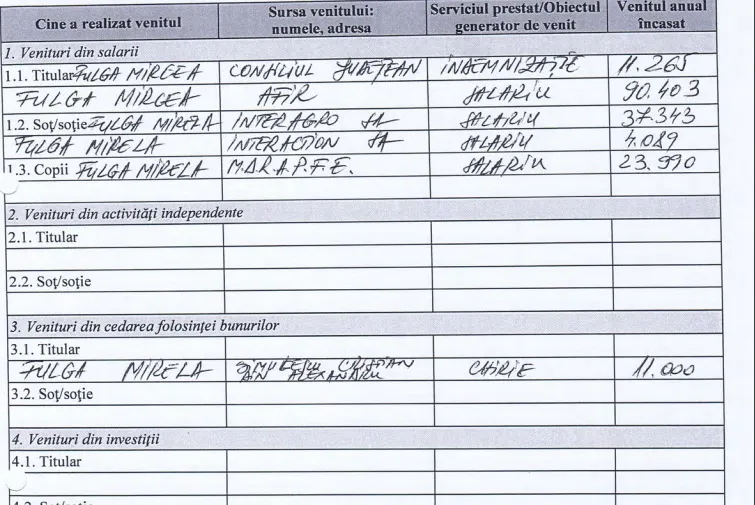 Cine a realizat venitul | Sursa venitului: numele, adresa | Serviciul prestat/Obiectul generator de venit | Venitul anual încasat
1. Venituri din salarii
1.1. Titular FULGA MIRCEA | CONSILIUL JUDEȚEAN | INDEMNIZAȚIE | 11.265
FULGA MIRCEA | AFIR | SALARIU | 90.403
1.2. Soț/soție FULGA MIRELA | INTERAGRO SA | SALARIU | 37.343
FULGA MIRELA | INTERACTION SA | SALARIU | 4.089
1.3. Copii FULGA MIRELA | M.D.R.A.P.F.E. | SALARIU | 23.990
2. Venituri din activități independente
2.1. Titular
2.2. Soț/soție
3. Venituri din cedarea folosinței bunurilor
3.1. Titular
FULGA MIRELA | CRISTIAN DIN ALEXANDRU | CHIRIE | 11.000
3.2. Soț/soție
4. Venituri din investiții
4.1. Titular